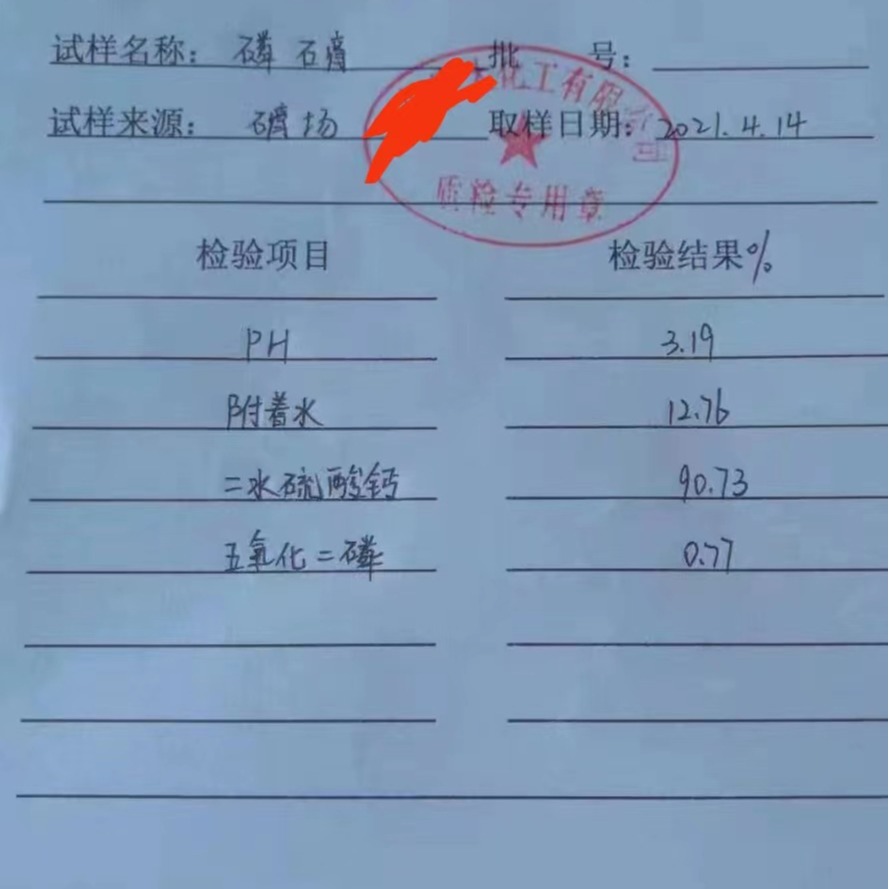 试样名称：磷石膏 批 号：
化工有限公司
试样来源：磺场 取样日期：2021.4.14
质检专用章
检验项目 检验结果%
PH 3.19
附着水 12.76
二水硫酸钙 90.73
五氧化二磷 0.77